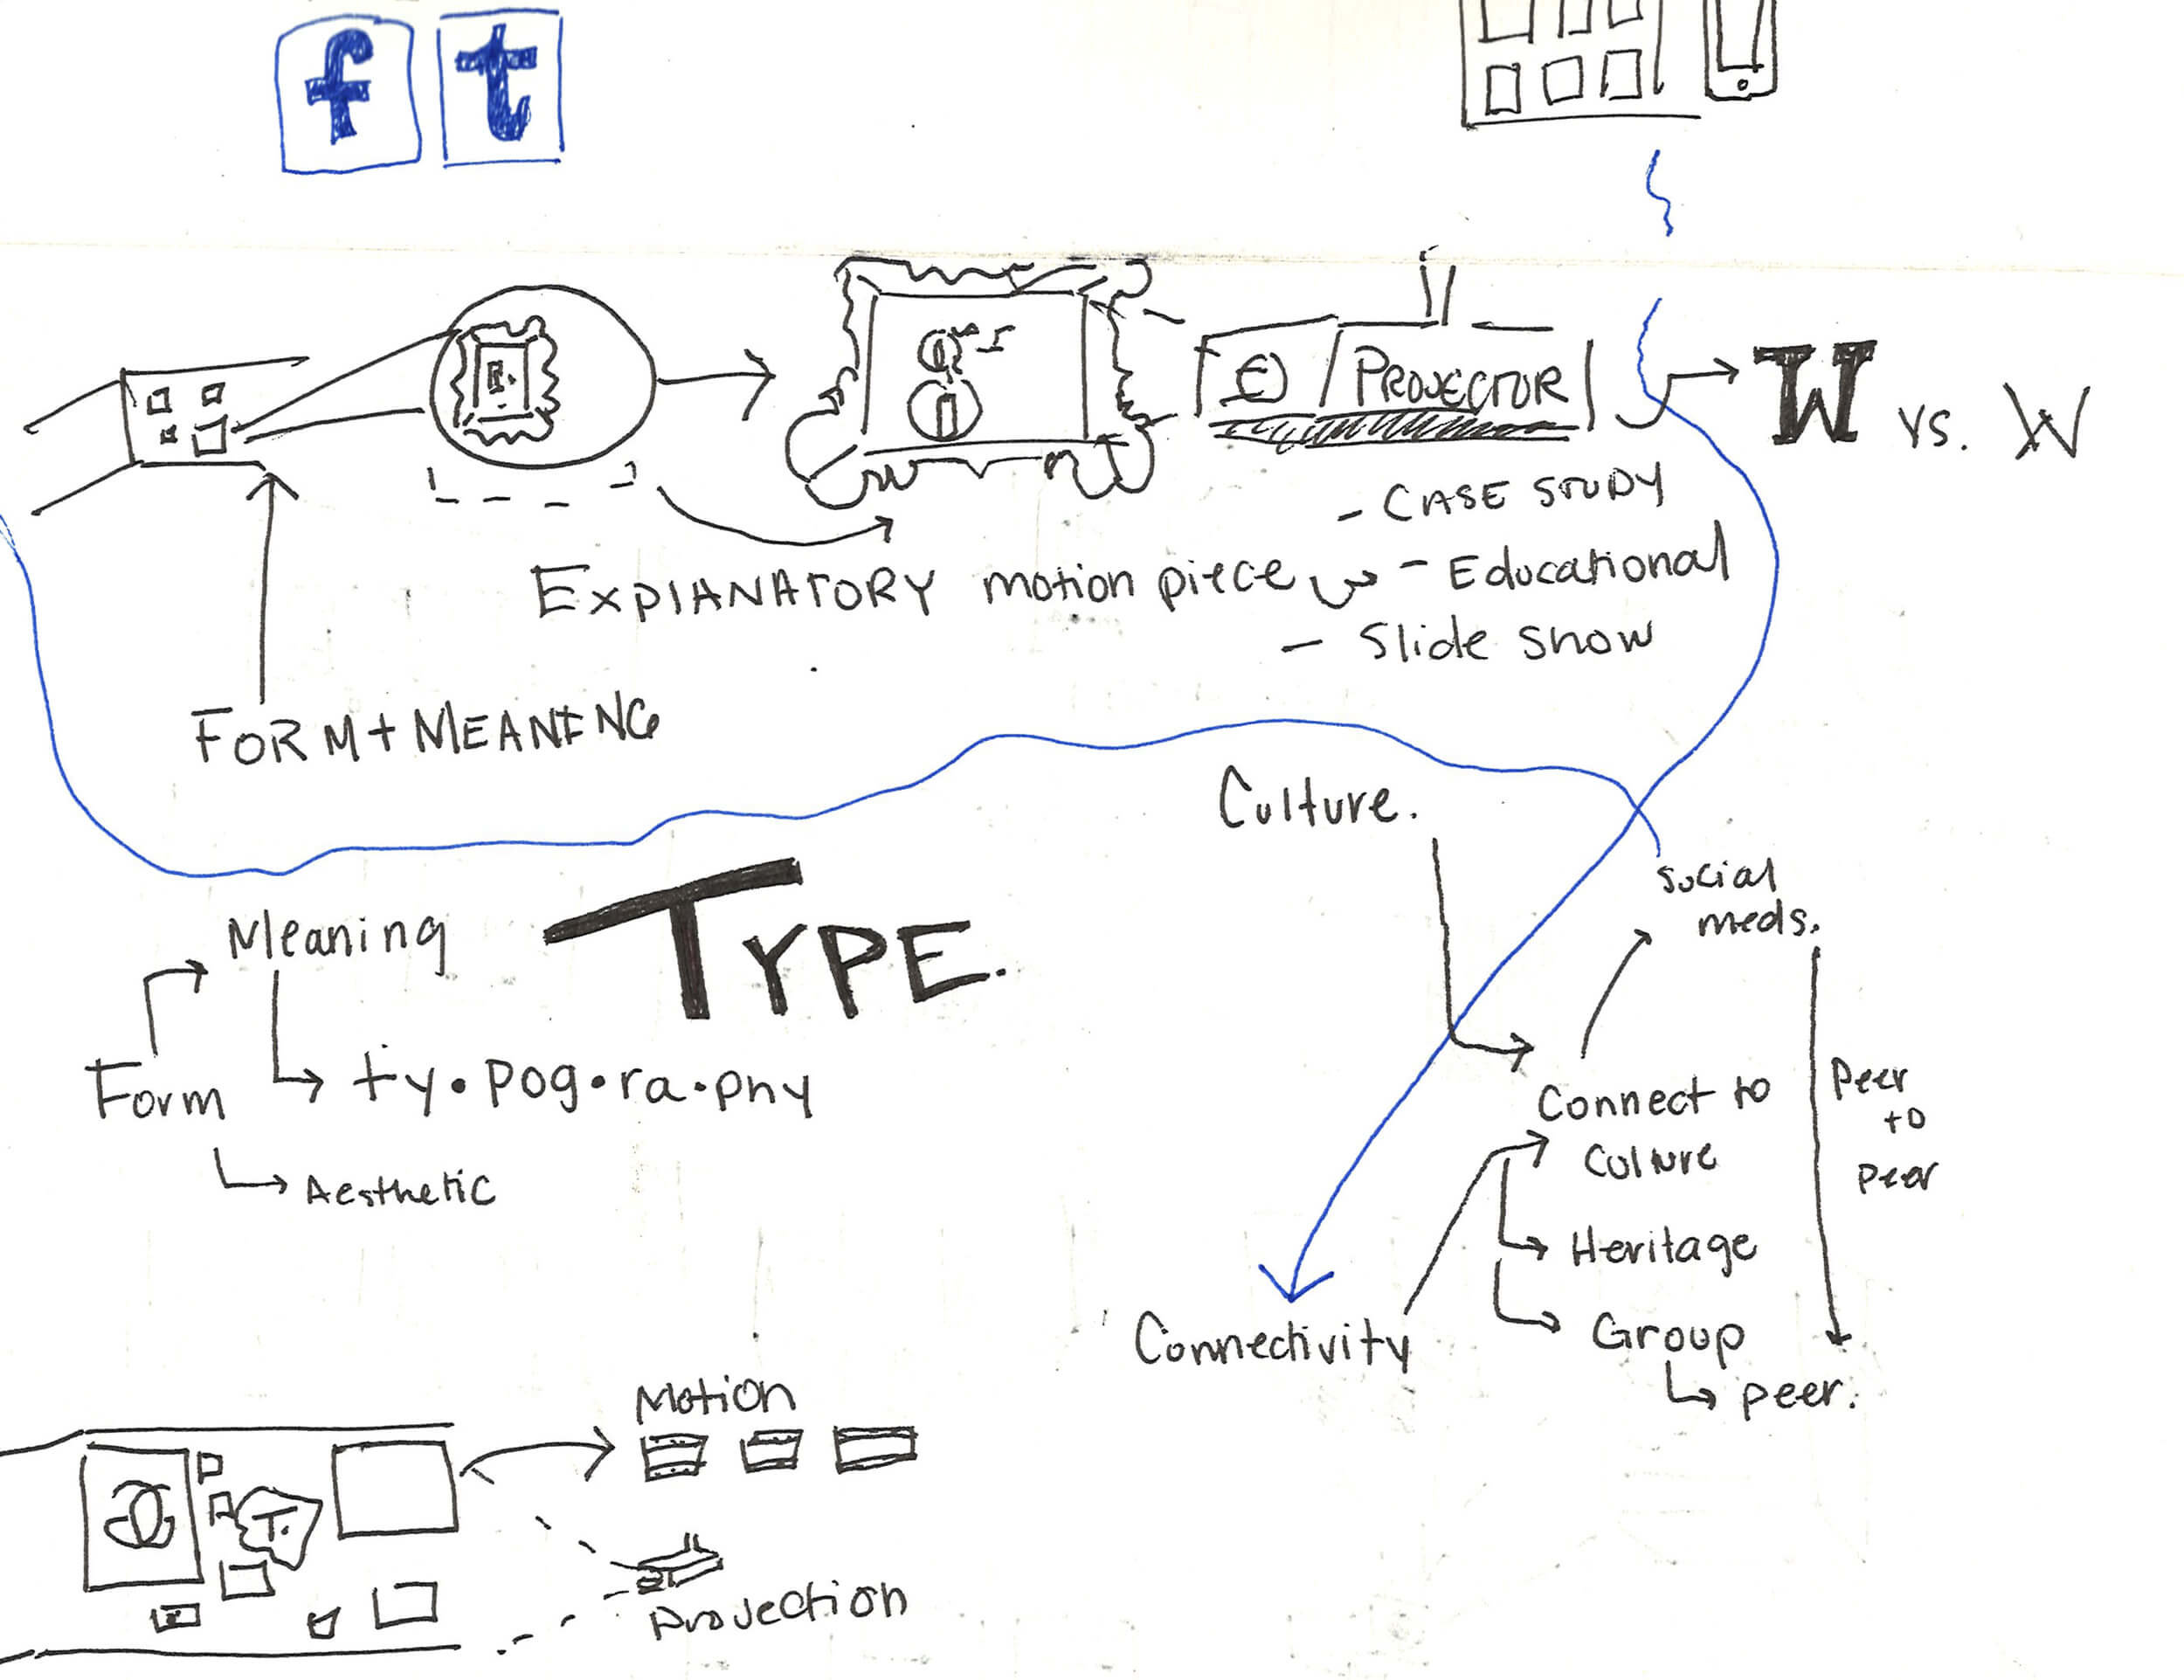 f t
PROJECTOR
W vs. W
- CASE STUDY
EXPlANATORY motion piece - Educational
- Slide Show
FORM + MEANING
Culture.
social
meds.
Meaning
TYPE.
Form
ty•pog•ra•phy
Aesthetic
Connect to
Culture
Peer
to
peer
Heritage
Group
Connectivity
peer.
Motion
T.
Projection